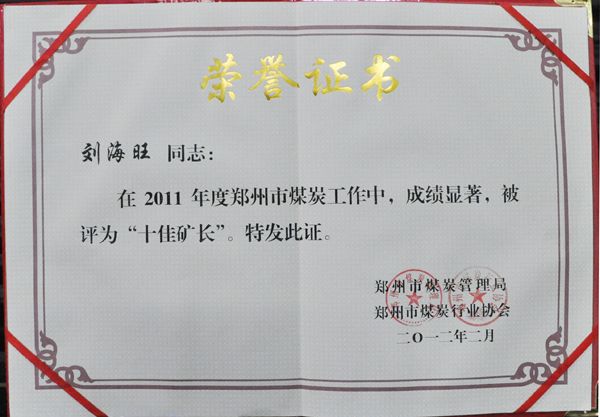 荣誉证书
刘海旺 同志：
在 2011 年度郑州市煤炭工作中，成绩显著，被
评为“十佳矿长”。特发此证。
郑州市煤炭管理局
郑州市煤炭行业协会
二〇一二年二月